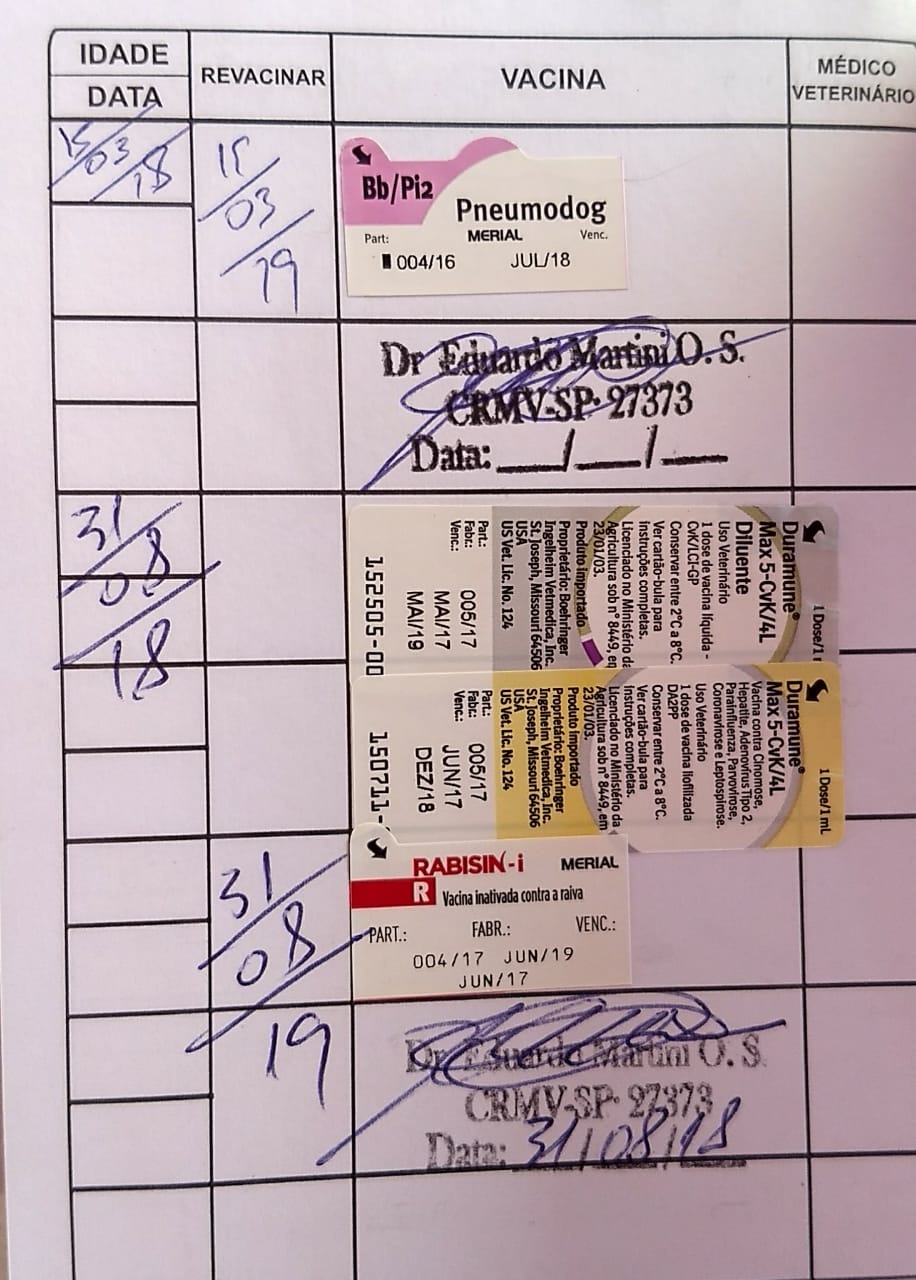 IDADE
DATA
REVACINAR
VACINA
MÉDICO
VETERINÁRIO
15/03/18
15/03/19
Bb/Pi2
Pneumodog
Part: MERIAL Venc.
004/16 JUL/18
Dr Eduardo Martini O. S.
CRMV-SP 27373
Data: __/__/__
31/08/18
1 Dose/1
Duramune®
Max 5-CvK/4L
Diluente
Uso Veterinário
1 dose de vacina líquida -
CvK/LCI-GP
Conservar entre 2°C a 8°C.
Ver cartão-bula para
instruções completas.
Licenciado no Ministério da
Agricultura sob n° 8449, em
23/01/03.
Produto Importado
Proprietário: Boehringer
Ingelheim Vetmedica, Inc.
St. Joseph, Missouri 64506
USA
US Vet. Lic. No. 124
Part.: 005/17
Fabr.: MAI/17
Venc.: MAI/19
152505-00
1 Dose/1 mL
Duramune®
Max 5-CvK/4L
Vacina contra Cinomose,
Hepatite, Adenovírus Tipo 2,
Parainfluenza, Parvovirose,
Coronavirose e Leptospirose.
Uso Veterinário
1 dose de vacina liofilizada
DA2PP
Conservar entre 2°C a 8°C.
Ver cartão-bula para
instruções completas.
Licenciado no Ministério da
Agricultura sob n° 8449, em
23/01/03.
Produto Importado
Proprietário: Boehringer
Ingelheim Vetmedica, Inc.
St. Joseph, Missouri 64506
USA
US Vet. Lic. No. 124
Part.: 005/17
Fabr.: JUN/17
Venc.: DEZ/18
150711-
31/08/19
RABISIN-i MERIAL
R Vacina inativada contra a raiva
PART.: FABR.: VENC.:
004/17 JUN/19
JUN/17
Dr Eduardo Martini O. S.
CRMV-SP 27373
Data: 31/08/18